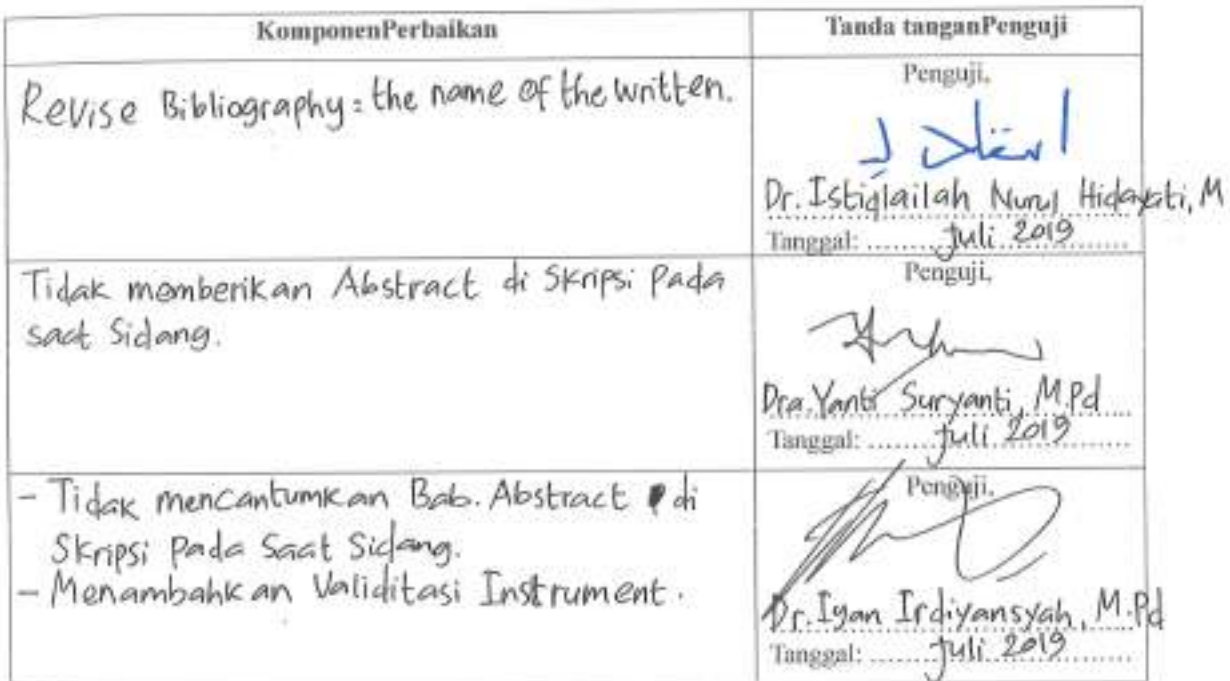 KomponenPerbaikan
Tanda tanganPenguji
Revise Bibliography: the name of the written.
Penguji,
Dr. Istiqlailah Nurul Hidayati, M
Tanggal: ........Juli 2019........
Tidak memberikan Abstract di Skripsi Pada
saat Sidang.
Penguji,
Dra. Yanti Suryanti, M.Pd
Tanggal: ........Juli 2019........
- Tidak mencantumkan Bab. Abstract di
Skripsi Pada Saat Sidang.
- Menambahkan Validitasi Instrument.
Penguji,
Dr. Iyan Irdiyansyah, M.Pd
Tanggal: ........Juli 2019........